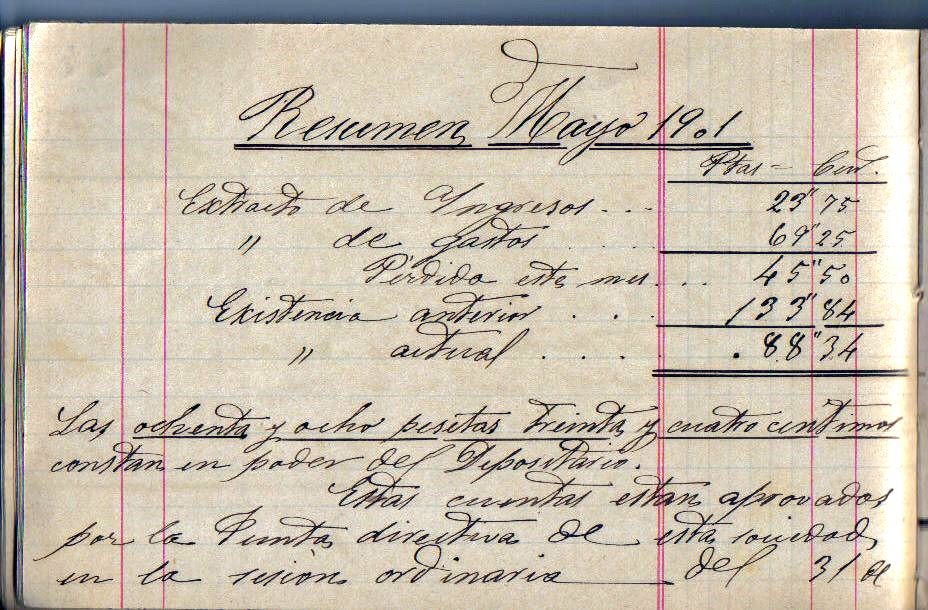 Resumen Mayo 1901
Ptas = Cent.
Extracto de Ingresos . . . 23" 75
" de gastos . . . . 69" 25
Pérdida este mes . . . 45" 50
Existencia anterior . . . 133" 84
" actual . . . . . 88" 34
Las ochenta y ocho pesetas treinta y cuatro centimos
constan en poder del Depositario.
Estas cuentas estan aprovados
por la Junta directiva de esta sociedad
en la sesion ordinaria del 31 de